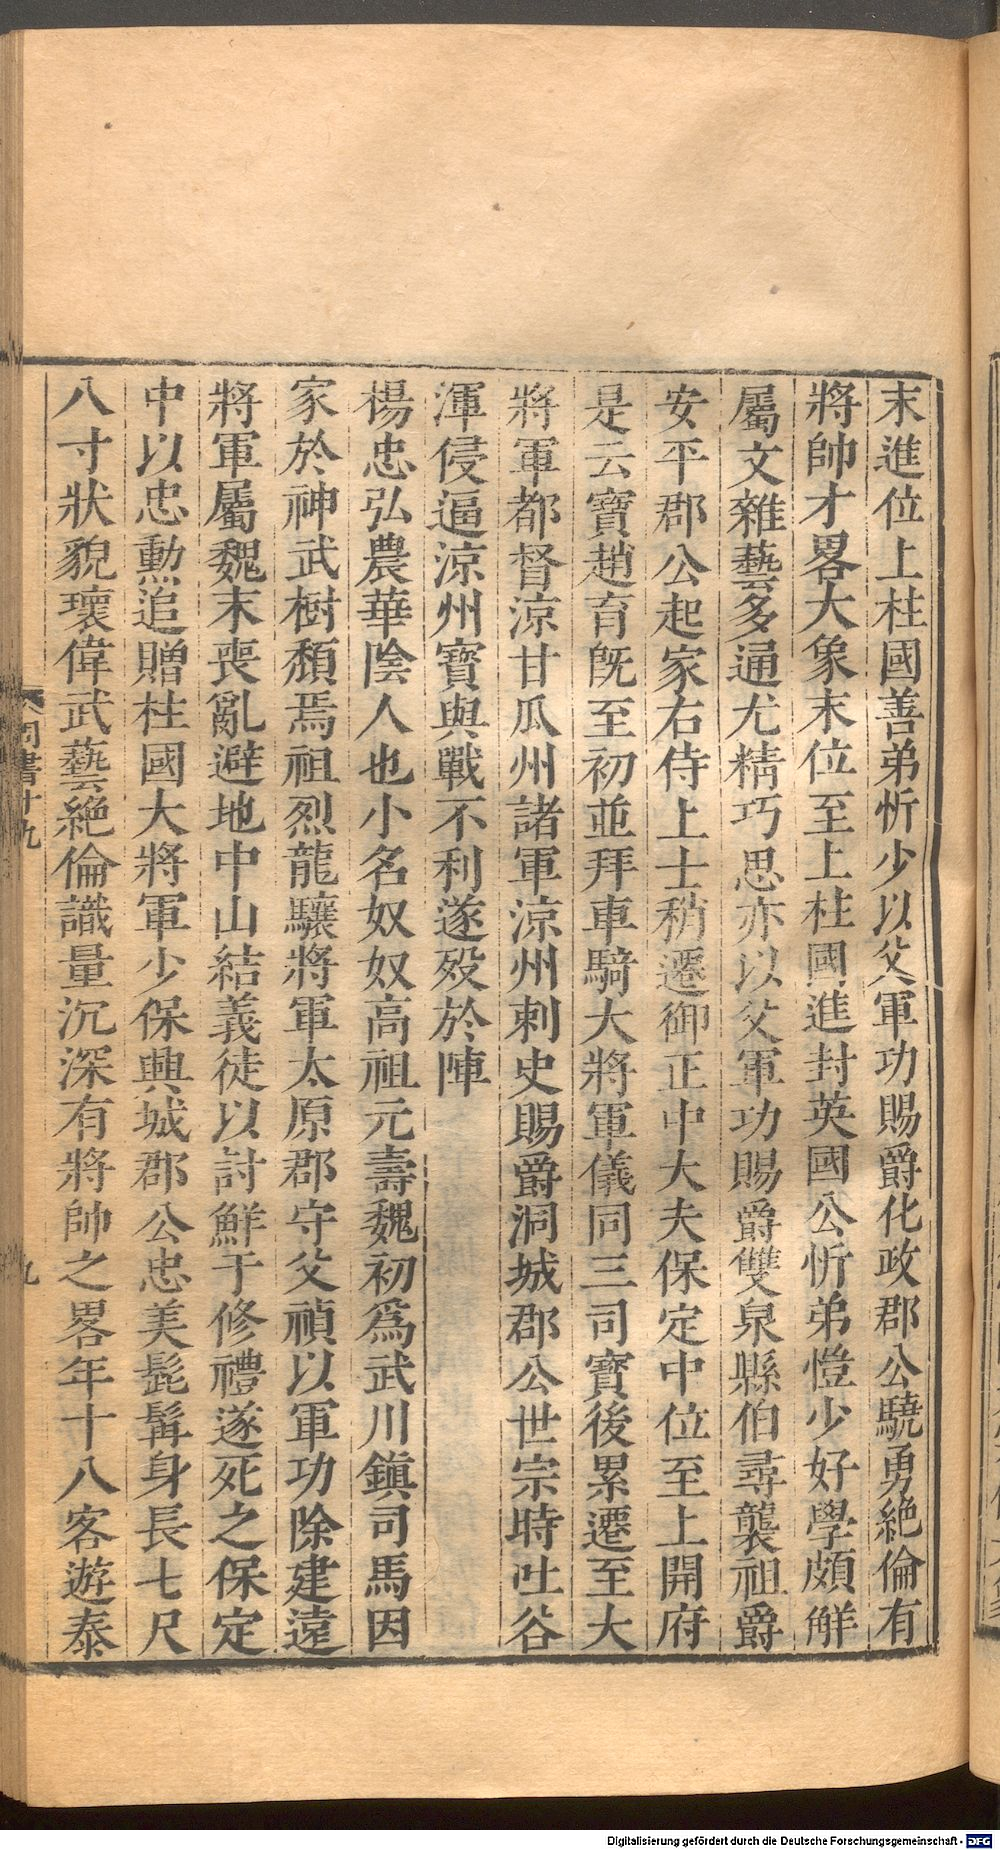 末進位上柱國善弟忻少以父軍功賜爵化政郡公驍勇絶倫有
將帥才畧大象末位至上柱國進封英國公忻弟愷少好學頗解
屬文雜藝多通尤精巧思亦以父軍功賜爵雙泉縣伯尋襲祖爵
安平郡公起家右侍上士稍遷御正中大夫保定中位至上開府
是云寶趙育旣至初並拜車騎大將軍儀同三司寶後累遷至大
將軍都督涼甘瓜州諸軍涼州刺史賜爵洞城郡公世宗時吐谷
渾侵逼涼州寶與戰不利遂殁於陣
楊忠弘農華陰人也小名奴奴高祖元壽魏初爲武川鎭司馬因
家於神武樹頹焉祖烈龍驤將軍太原郡守父禎以軍功除建遠
將軍屬魏末喪亂避地中山結義徒以討鮮于修禮遂死之保定
中以忠勳追贈柱國大將軍少保興城郡公忠美髭髯身長七尺
八寸狀貌瓌偉武藝絶倫識量沉深有將帥之畧年十八客遊泰
周書十九
九
Digitalisierung gefördert durch die Deutsche Forschungsgemeinschaft - DFG